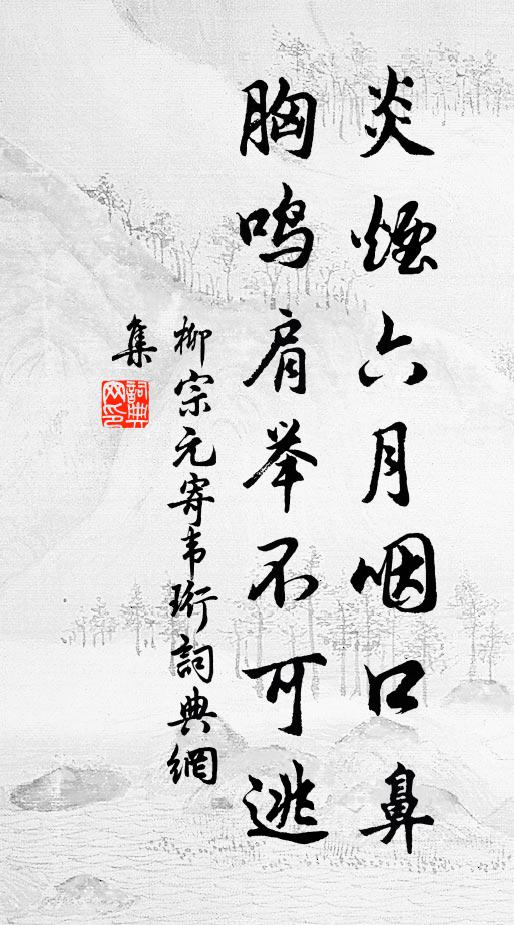 炎煙六月咽口鼻
胸鸣肩举不可逃
柳宗元寄韦珩詞典網
集
詞典
网印